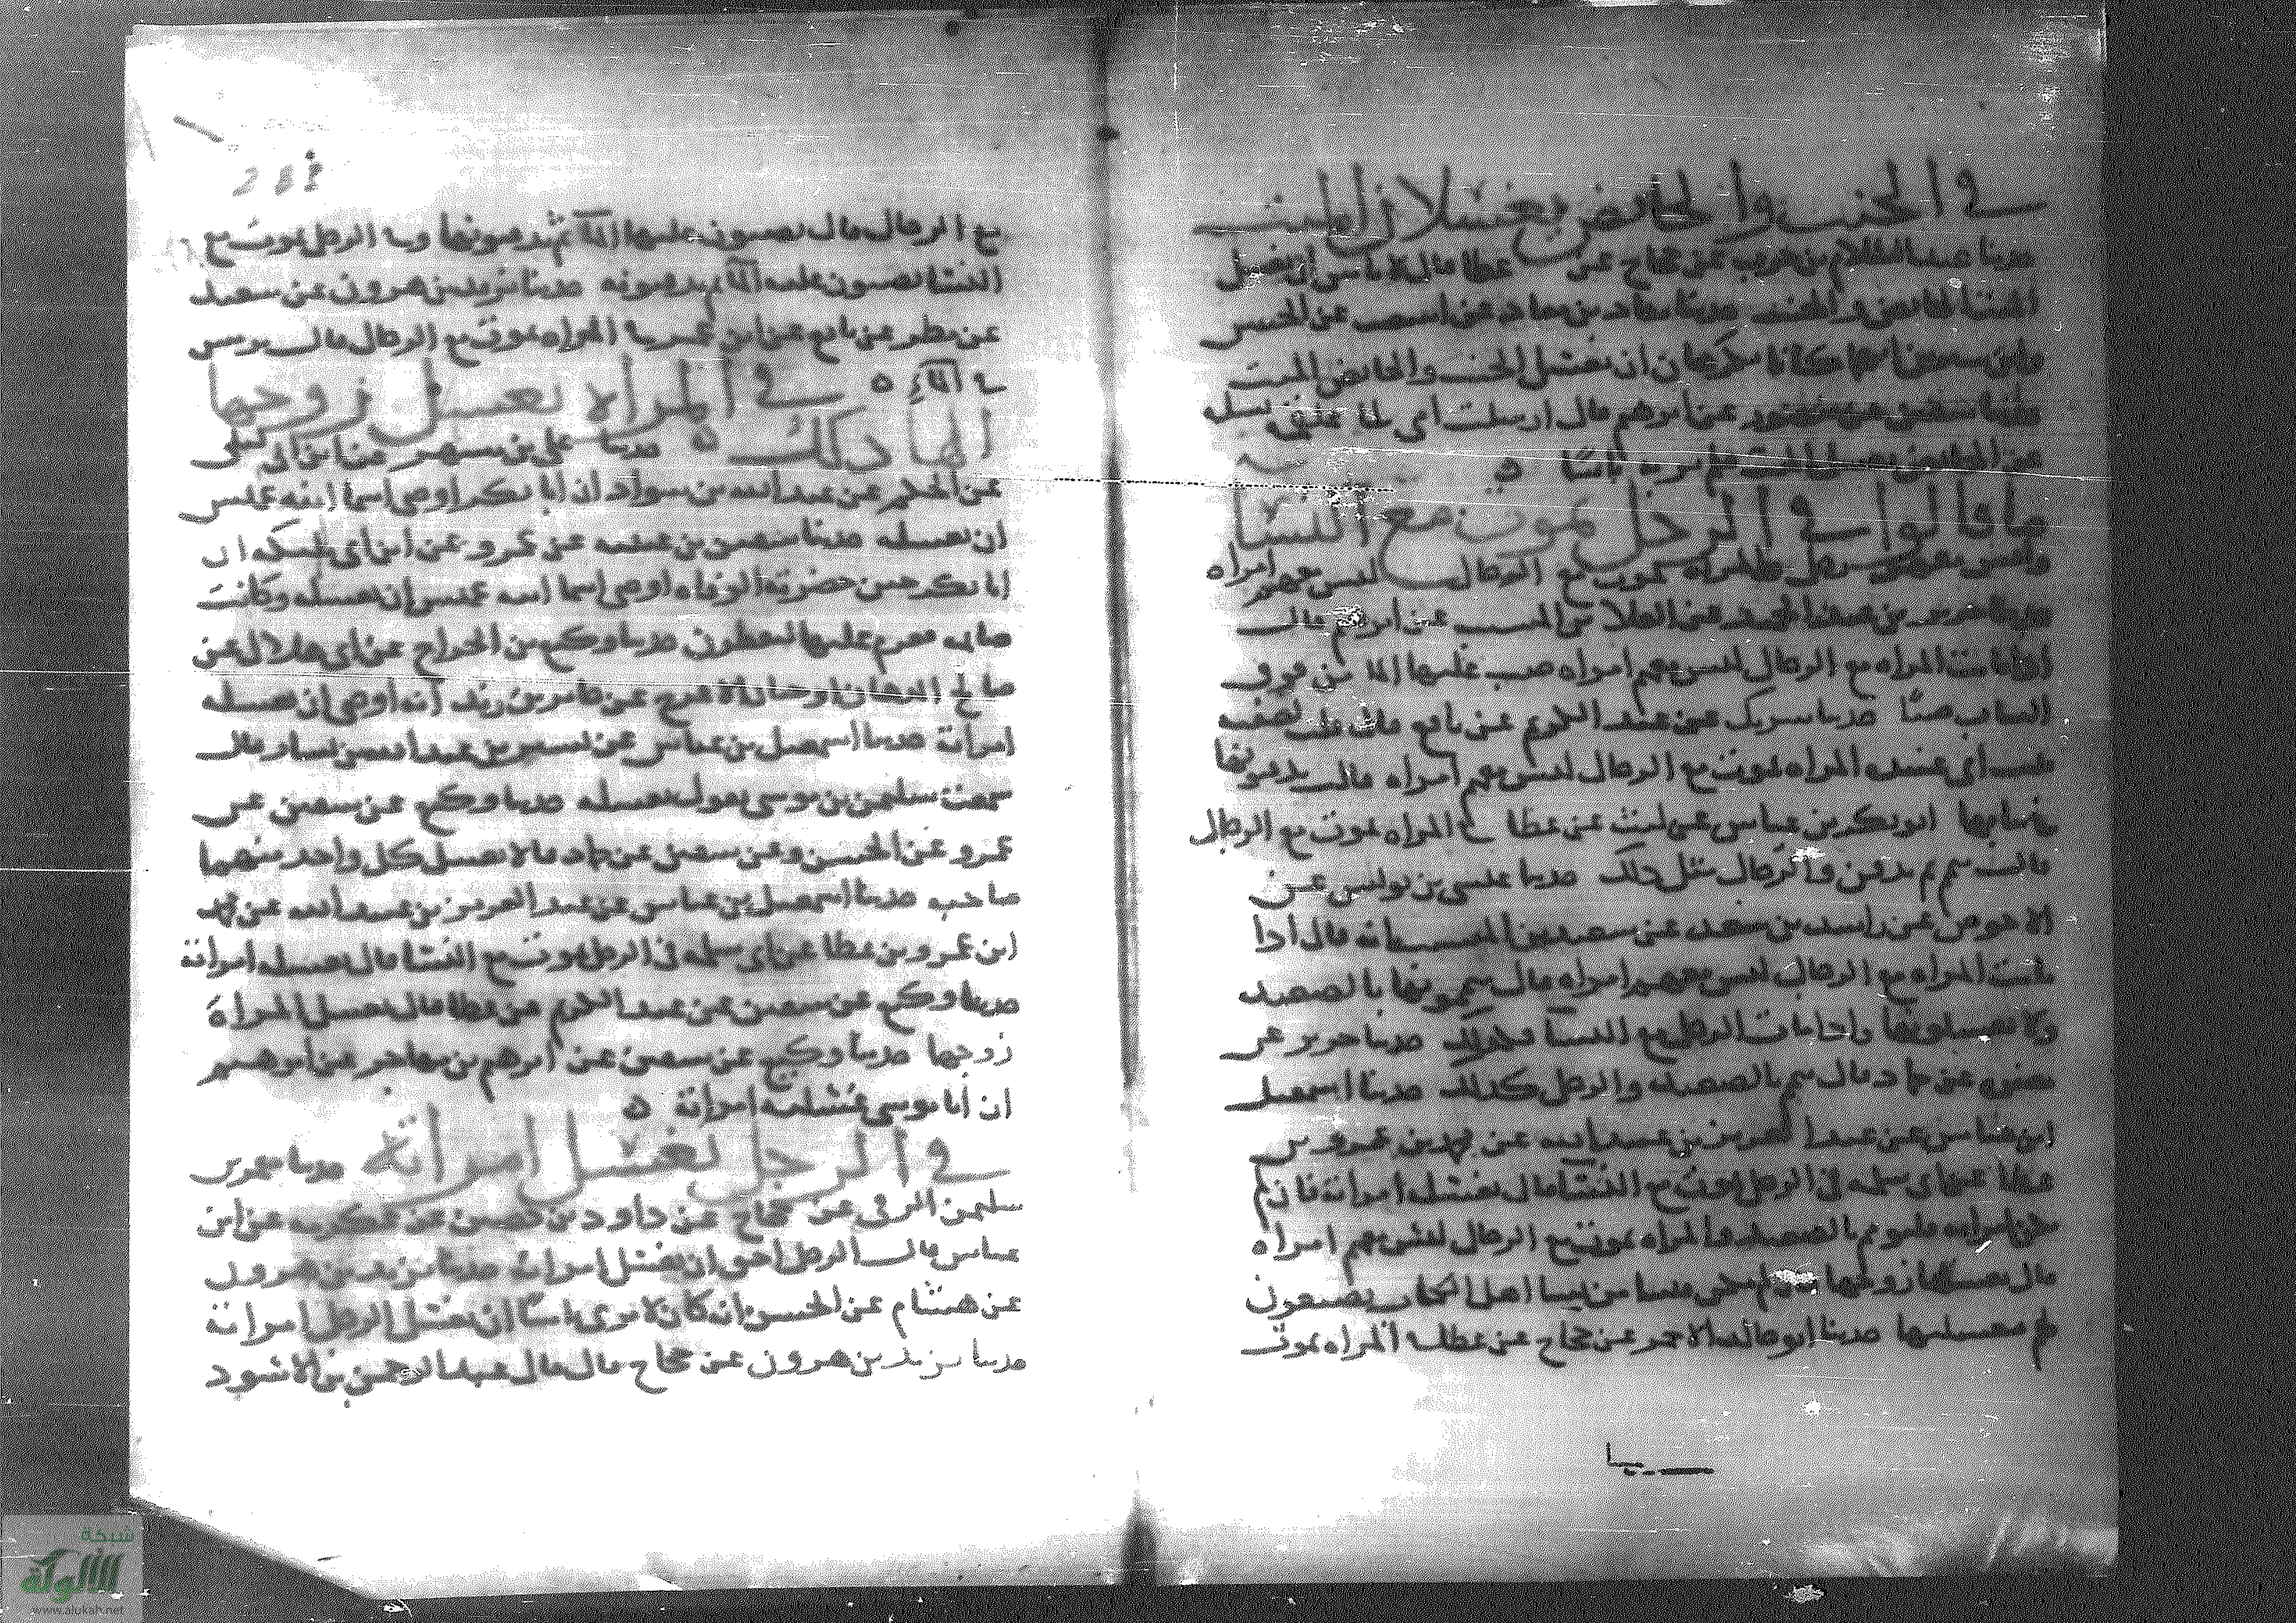 في الجنب والحائض يغسلان الميت
حدثنا عبد السلام بن حرب عن حجاج عن عطا قال لا باس ان يغسل
الميت الحائض والجنب حدثنا معاد بن معاد عن اشعث عن الحسن
وابن سيرين انهما كانا يكرهان ان يغسل الجنب والحائض الميت
عن منصور عن ابرهيم قال ارسلت امي الى علقمة تسله
عن الحائض تغسل الميت فلم ير به باسا ه
ما قالوا في الرجل يموت مع النسا
والمراه تموت مع الرجال ليس معهم امراه
جرير بن عبد الحميد عن العلا بن المسيب عن ابرهيم قال
اذا ماتت المراه مع الرجال ليس معهم امراه صب عليها الما من فوق
الثياب صبا حدثنا شريك عن عبد الكريم عن نافع قال قلت لصفيه
بنت ابي عبيد المراه تموت مع الرجال ليس معهم امراه قالت يدفنونها
في ثيابها ابو بكر بن عياش عن ليث عن عطا في المراه تموت مع الرجال
قال تيمم ثم تدفن والرجال مثل ذلك حدثنا عيسى بن يونس عن
الاحوص عن راشد بن سعد عن سعيد بن المسيب انه قال اذا
ماتت المراه مع الرجال ليس معهم امراه قال يتيممونها بالصعيد
ولا يغسلونها واذا مات الرجل مع النسا فكذلك حدثنا جرير عن
مغيره عن حماد قال تيمم بالصعيد والرجل كذلك حدثنا اسمعيل
ابن عياش عن عبد العزيز بن عبيد الله عن محمد بن عمرو بن
عطا عن ابي سلمه في الرجل يموت مع النسا قال تغسله امراته فان لم
تكن امراته فليتيمم بالصعيد والمراه تموت مع الرجال ليس معهم امراه
قال يغسلها زوجها من نسا اهل الكتاب يصببن
لهم تغسيلها حدثنا ابو خالد الاحمر عن حجاج عن عطا في المراه تموت
مع الرجال قال يصبون عليها الما ثم يدفنونها وفي الرجل يموت مع
النسا يصبون عليه الما ثم يدفنونه حدثنا يزيد بن هرون عن سعيد
عن مطر عن نافع عن ابن عمر في المراه تموت مع الرجال قال ترمس
في الما ه في المراه تغسل زوجها
الها ذلك ه حدثنا علي بن مسهر عن ابن ابي ليلى
عن الحكم عن عبد الله بن شداد ان ابا بكر اوصى اسما ابنه عميس
ان تغسله حدثنا سفين بن عيينه عن عمرو عن ابن ابي مليكه ان
ابا بكر حين حضرته الوفاه اوصى اسما ابنه عميس ان تغسله وكانت
صايمه فعزم عليها لتفطرن حدثنا وكيع بن الجراح عن ابي هلال عن
صالح الدهان او حيان الاعرج عن جابر بن زيد انه اوصى ان تغسله
امراته حدثنا اسمعيل بن عياش عن تميم بن عبد الله بن يسار قال
سمعت سليمن بن موسى يقول تغسله حدثنا وكيع عن سفين عن
عمرو عن الحسن وعن سفين عن حماد قالا يغسل كل واحد منهما
صاحبه حدثنا اسمعيل بن عياش عن عبد العزيز بن عبيد الله عن محمد
ابن عمرو بن عطا عن ابي سلمه في الرجل يموت مع النسا قال تغسله امراته
حدثنا وكيع عن سفين عن عبد الكريم عن عطا قال تغسل المراه
زوجها حدثنا وكيع عن سفين عن ابرهيم بن مهاجر عن ابرهيم
ان ابا موسى غسلته امراته ه
في الرجل يغسل امراته حدثنا معمر بن
سليمن الرقي عن حجاج عن داود بن حصين عن عكرمه عن ابن
عباس قال الرجل احق ان يغسل امراته حدثنا يزيد بن هرون
عن هشام عن الحسن انه كان لا يرى باسا ان يغسل الرجل امراته
حدثنا يزيد بن هرون عن حجاج قال قال عبد الرحمن بن الاسود
شبكة
الألوكة
www.alukah.net